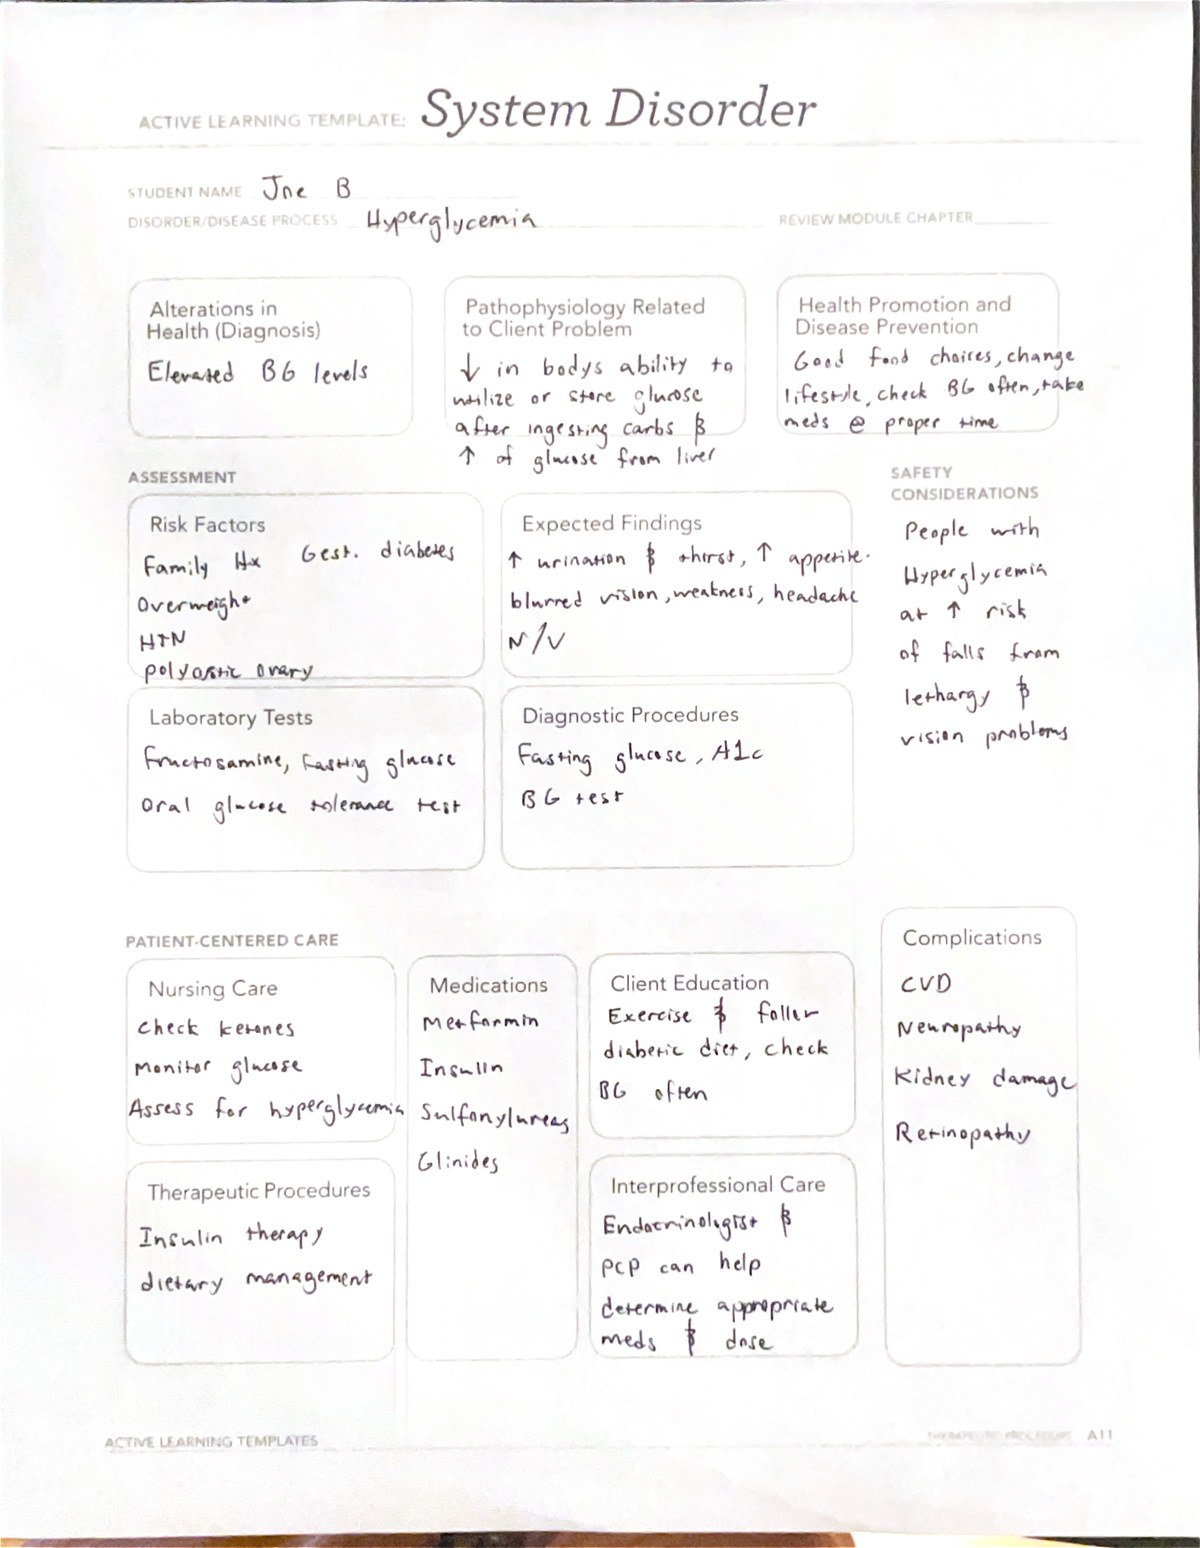 ACTIVE LEARNING TEMPLATE: System Disorder
STUDENT NAME Joe B
DISORDER/DISEASE PROCESS Hyperglycemia
REVIEW MODULE CHAPTER
Alterations in
Health (Diagnosis)
Elevated BG levels
Pathophysiology Related
to Client Problem
↓ in bodys ability to
utilize or store glucose
after ingesting carbs &
↑ of glucose from liver
Health Promotion and
Disease Prevention
Good food choices, change
lifestyle, check BG often, take
meds @ proper time
ASSESSMENT
SAFETY
CONSIDERATIONS
People with
Hyperglycemia
at ↑ risk
of falls from
lethargy &
vision problems
Risk Factors
Family Hx Gest. diabetes
Overweight
HTN
polycystic ovary
Expected Findings
↑ urination & thirst, ↑ appetite.
blurred vision, weakness, headache
N/V
Laboratory Tests
Fructosamine, Fasting glucose
Oral glucose tolerance test
Diagnostic Procedures
Fasting glucose, A1c
BG test
PATIENT-CENTERED CARE
Nursing Care
Check ketones
Monitor glucose
Assess for hyperglycemia
Medications
Metformin
Insulin
Sulfonylureas
Glinides
Client Education
Exercise &
diabetic diet, check
BG often
Complications
CVD
Neuropathy
Kidney damage
Retinopathy
Therapeutic Procedures
Insulin therapy
dietary management
Interprofessional Care
Endocrinologist &
PCP can help
determine appropriate
meds & dose
ACTIVE LEARNING TEMPLATES
THERAPEUTIC PROCEDURE A11